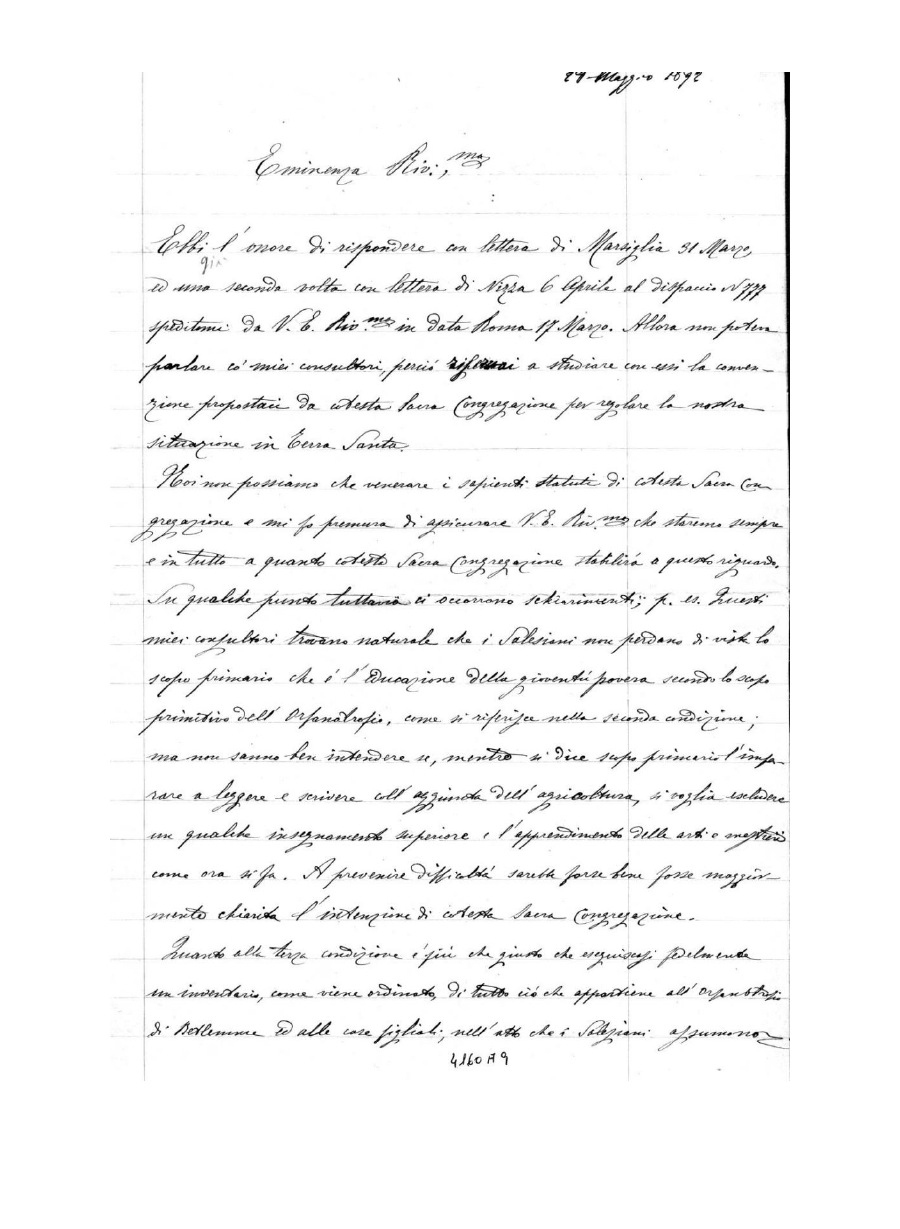 Maggio 1892
Eminenza Rev.ma
Ebbi l'onore di rispondere con lettera di Marsiglia 31 Marzo,
già
ed una seconda volta con lettera di Nizza 6 Aprile al dispaccio N 777
speditomi da V. E. Rev.ma in data Roma 17 Marzo. Allora non poteva
parlare co' miei consultori, perciò a studiare con essi la conven-
zione propostaci da cotesta Sacra Congregazione per regolare la nostra
situazione in Terra Santa.
Noi non possiamo che venerare i sapienti statuti di cotesta Sacra Con-
gregazione e mi fo premura di assicurare V. E. Rev.ma che staremo sempre
e in tutto a quanto cotesta Sacra Congregazione stabilirà a questo riguardo.
Su qualche punto tuttavia ci occorrono schiarimenti; p. es. Questi
miei consultori trovano naturale che i Salesiani non perdano di vista lo
scopo primario che è l'educazione della gioventù povera secondo lo scopo
primitivo dell'Orfanatrofio, come si riferisce nella seconda condizione;
ma non sanno ben intendere se, mentre si dice scopo primario l'impa-
rare a leggere e scrivere coll'aggiunta dell'agricoltura, si voglia escludere
un qualche insegnamento superiore e l'apprendimento delle arti o mestieri
come ora si fa. A prevenire difficoltà sarebbe forse bene fosse maggior-
mente chiarita l'intenzione di cotesta Sacra Congregazione.
Quanto alla terza condizione è più che giusto che eseguiscasi fedelmente
un inventario, come viene ordinato, di tutto ciò che appartiene all'Orfanotrofio
di Betlemme ed alle case figliali; nell'atto che i Salesiani assumono
4160A9